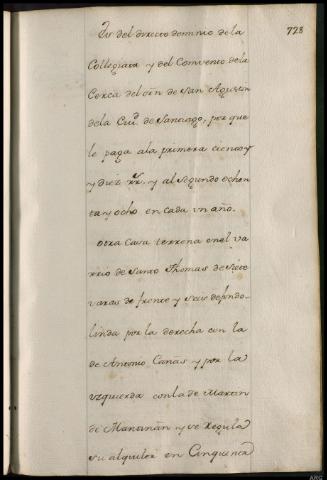 728
Es del directo dominio de la
Collegiata y del Convento de la
Cerca del orn de San Agustin
de la Ciud de Santiago, por que
le paga ala primera ciento y
y diez rr.s y al segundo ochen
ta y ocho en cada un año.
Otra Casa terrena en el va
rrio de Santo Thomas de siete
varas de frente y seis de fondo
linda por la derecha con la
de Antonio Canas y por la
yzquierda con la de Martin
de Mantiñan y se Regula
su alquiler en Cinquenta